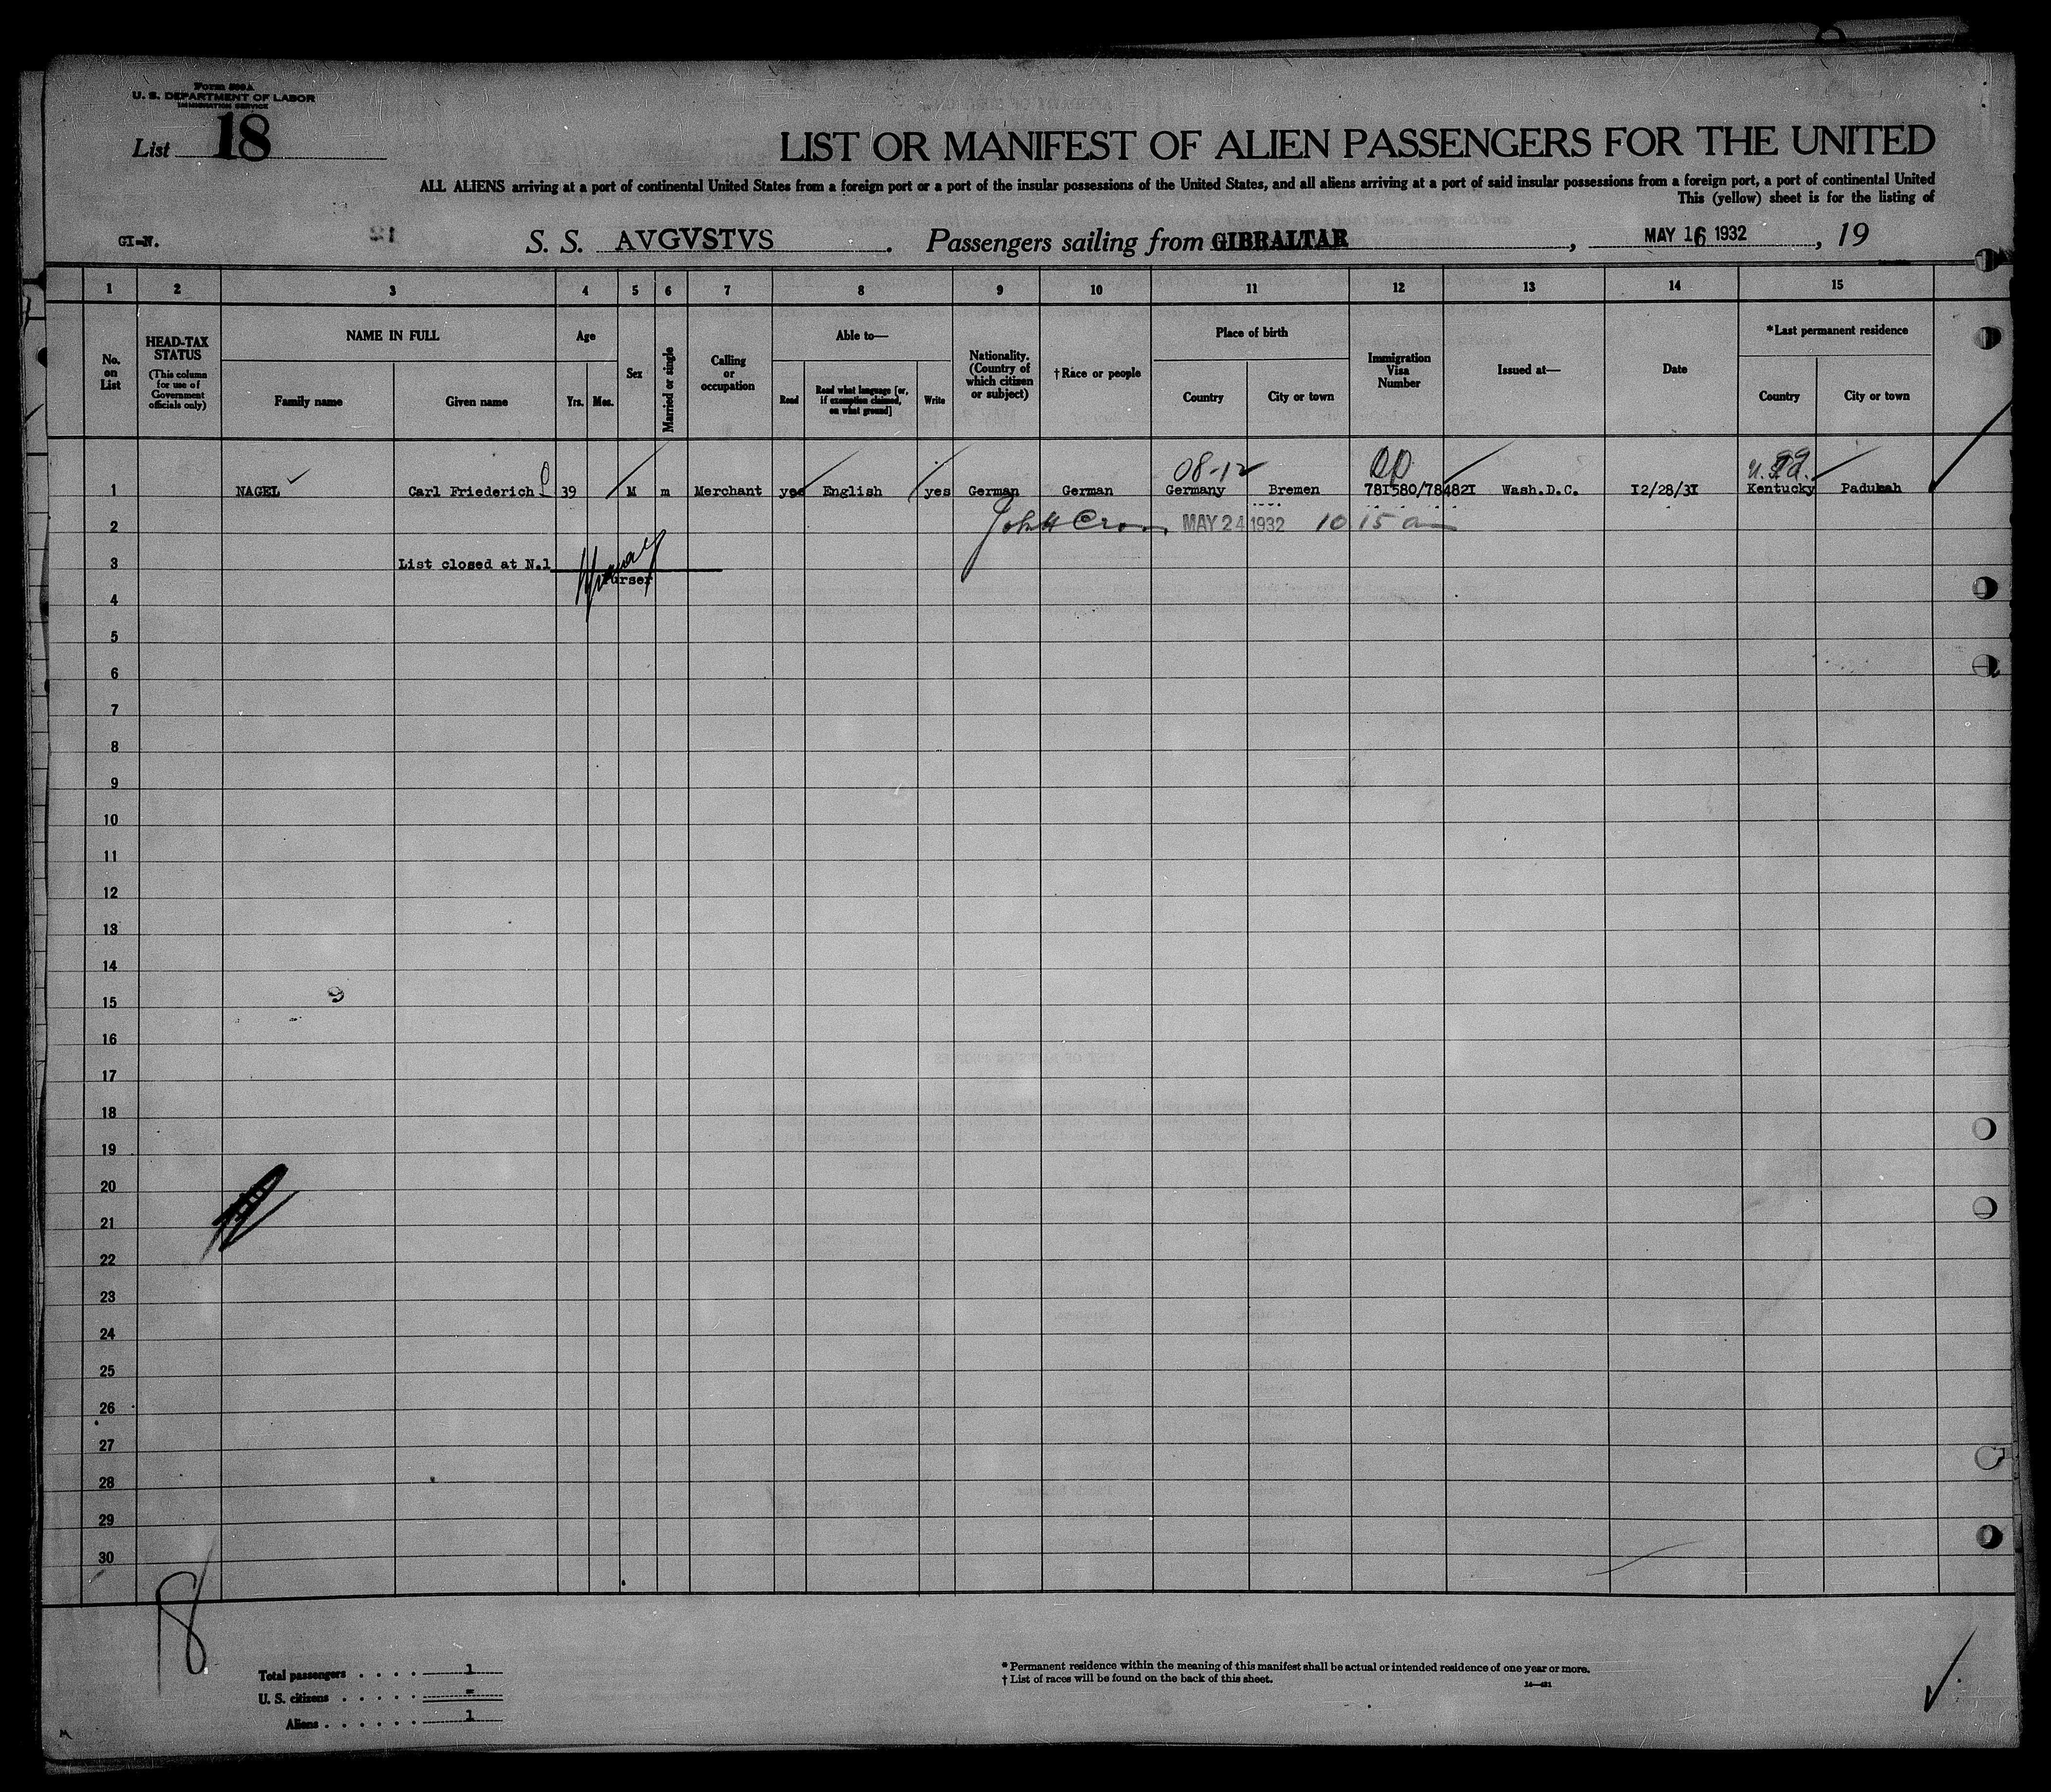 Form 500A
U. S. DEPARTMENT OF LABOR
IMMIGRATION SERVICE
List 18
LIST OR MANIFEST OF ALIEN PASSENGERS FOR THE UNITED
ALL ALIENS arriving at a port of continental United States from a foreign port or a port of the insular possessions of the United States, and all aliens arriving at a port of said insular possessions from a foreign port, a port of continental United
This (yellow) sheet is for the listing of
GI-N.
S. S. AVGVSTVS . Passengers sailing from GIBRALTAR , MAY 16 1932 , 19
1 2 3 4 5 6 7 8 9 10 11 12 13 14 15
No. on List
HEAD-TAX STATUS
(This column for use of Government officials only)
NAME IN FULL
Family name
Given name
Age
Yrs.
Mos.
Sex
Married or single
Calling or occupation
Able to—
Read
Read what language [or, if exemption claimed, on what ground]
Write
Nationality. (Country of which citizen or subject)
†Race or people
Place of birth
Country
City or town
Immigration Visa Number
Issued at—
Date
*Last permanent residence
Country
City or town
08-12
1 NAGEL Carl Friederich 39 M m Merchant yes English yes German German Germany Bremen 781580/784821 Wash.D.C. 12/28/31 Kentucky Padukah
2 MAY 24 1932 10 15 a
3 List closed at N.1
Purser
4
5
6
7
8
9
10
11
12
13
14
15
16
17
18
19
20
21
22
23
24
25
26
27
28
29
30
18
Total passengers . . . . 1
U. S. citizens . . . . . -
Aliens . . . . . . 1
* Permanent residence within the meaning of this manifest shall be actual or intended residence of one year or more.
† List of races will be found on the back of this sheet.